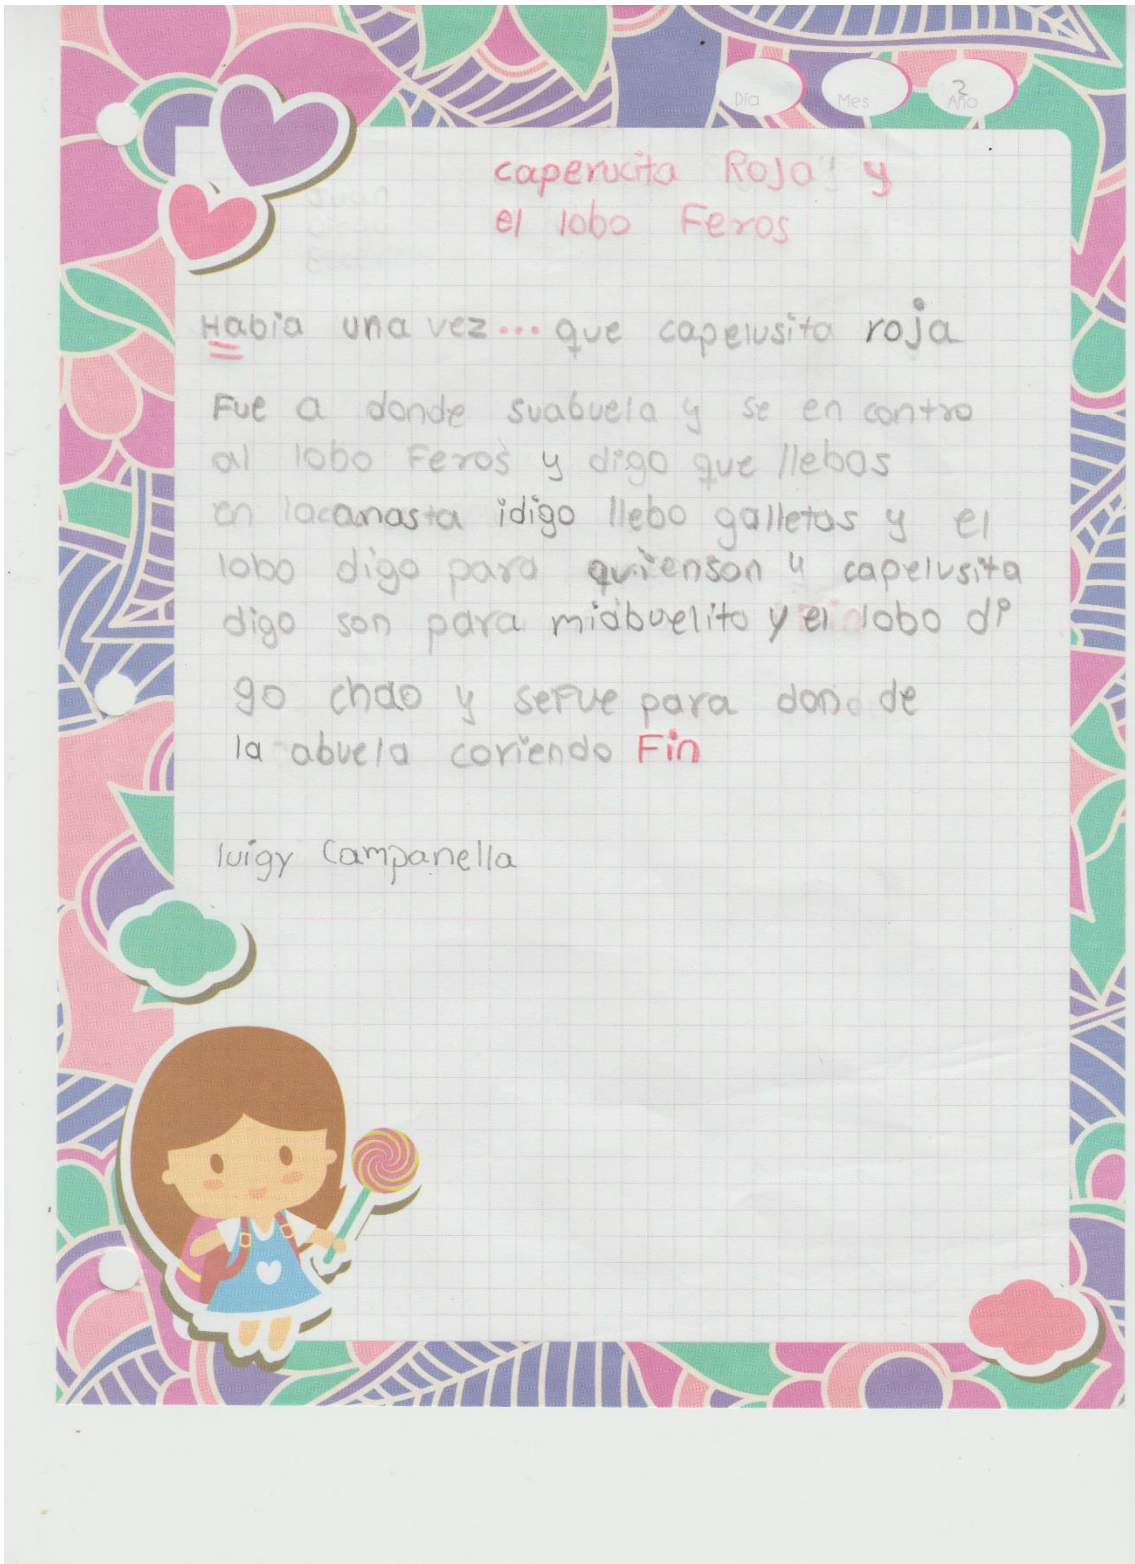 Día Mes Año
2
caperucita Roja y
el lobo Feros
Habia una vez... que capelusita roja
Fue a donde suabuela y se en contro
al lobo Feros y digo que llebas
en lacanasta idigo llebo galletas y el
lobo digo para quienson y capelusita
digo son para miabuelito y el lobo di
go chao y sefue para don de
la abuela coriendo Fin
luigy Campanella